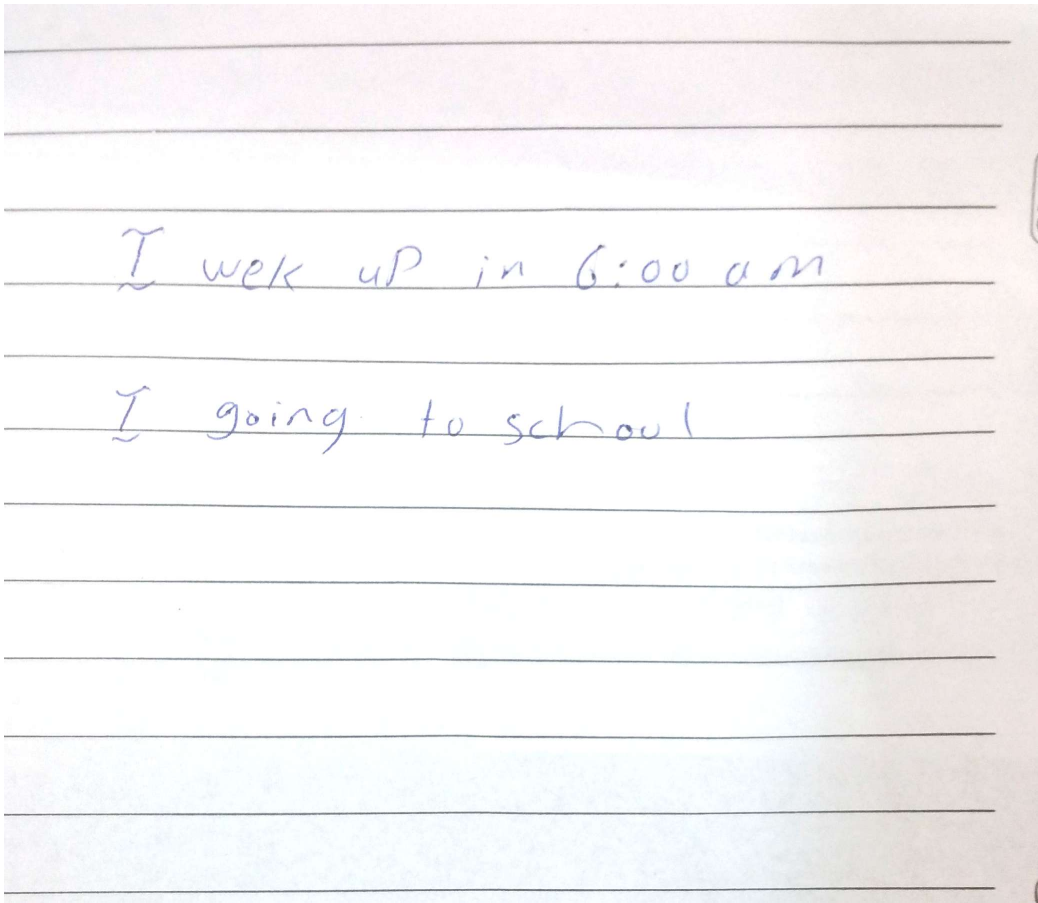 I wek up in 6:00 am
I going to school